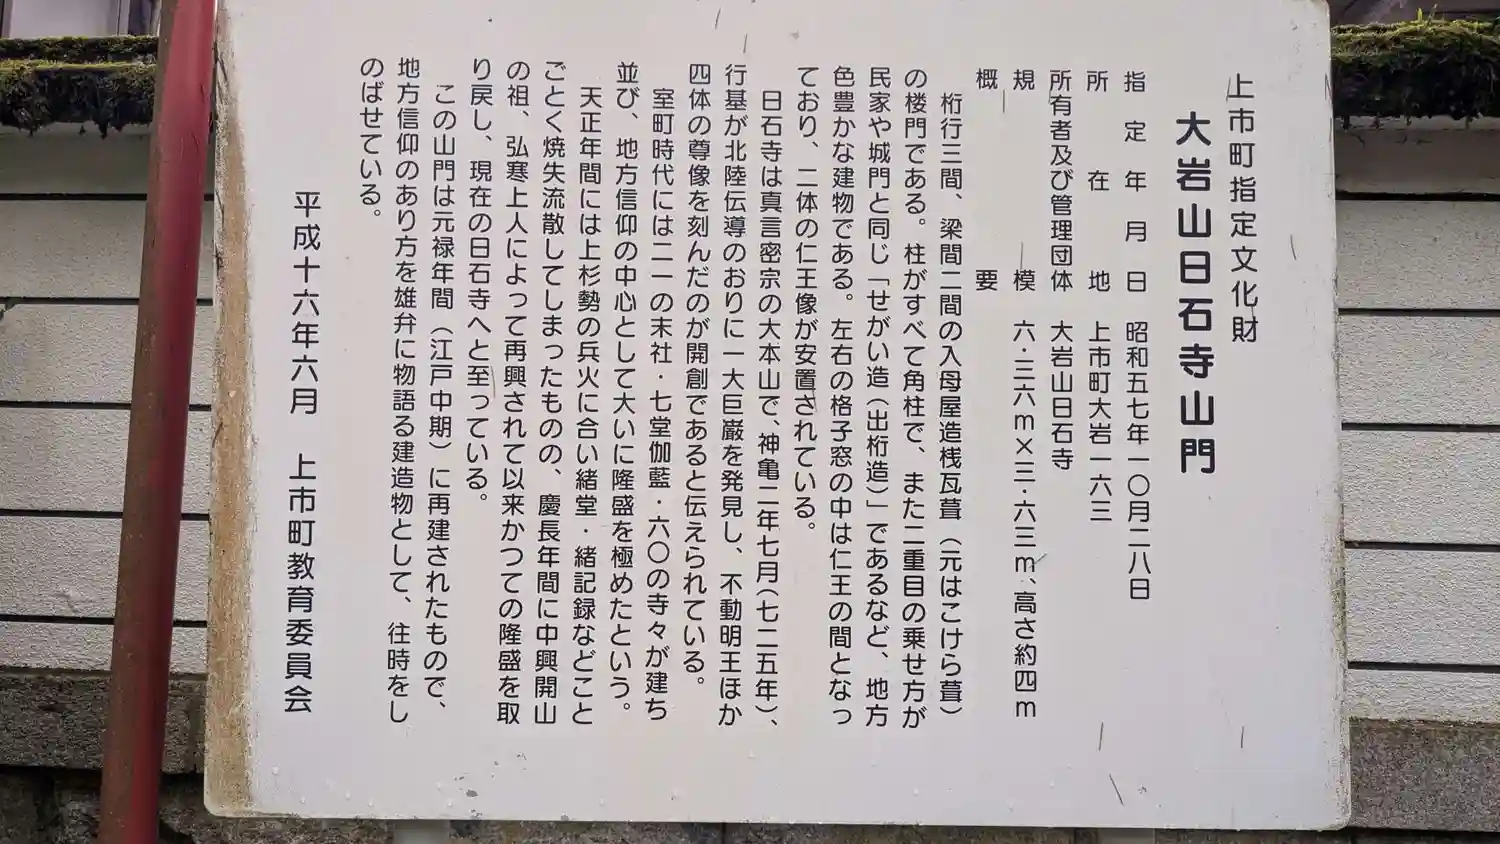 上市町指定文化財
大岩山日石寺山門
指定年月日 昭和五七年一〇月二八日
所在地 上市町大岩一六三
所有者及び管理団体 大岩山日石寺
規模 六・三六m×三・六三m、高さ約四m
概要
桁行三間、梁間二間の入母屋造桟瓦葺（元はこけら葺）
の楼門である。柱がすべて角柱で、また二重目の乗せ方が
民家や城門と同じ「せがい造（出桁造）」であるなど、地方
色豊かな建物である。左右の格子窓の中は仁王の間となっ
ており、二体の仁王像が安置されている。
日石寺は真言密宗の大本山で、神亀二年七月（七二五年）、
行基が北陸伝導のおりに一大巨巌を発見し、不動明王ほか
四体の尊像を刻んだのが開創であると伝えられている。
室町時代には二一の末社・七堂伽藍・六〇の寺々が建ち
並び、地方信仰の中心として大いに隆盛を極めたという。
天正年間には上杉勢の兵火に合い緒堂・緒記録などことご
ごとく焼失流散してしまったものの、慶長年間に中興開山
の祖、弘寒上人によって再興されて以来かつての隆盛を取
り戻し、現在の日石寺へと至っている。
この山門は元禄年間（江戸中期）に再建されたもので、
地方信仰のあり方を雄弁に物語る建造物として、往時をし
のばせている。
平成十六年六月 上市町教育委員会